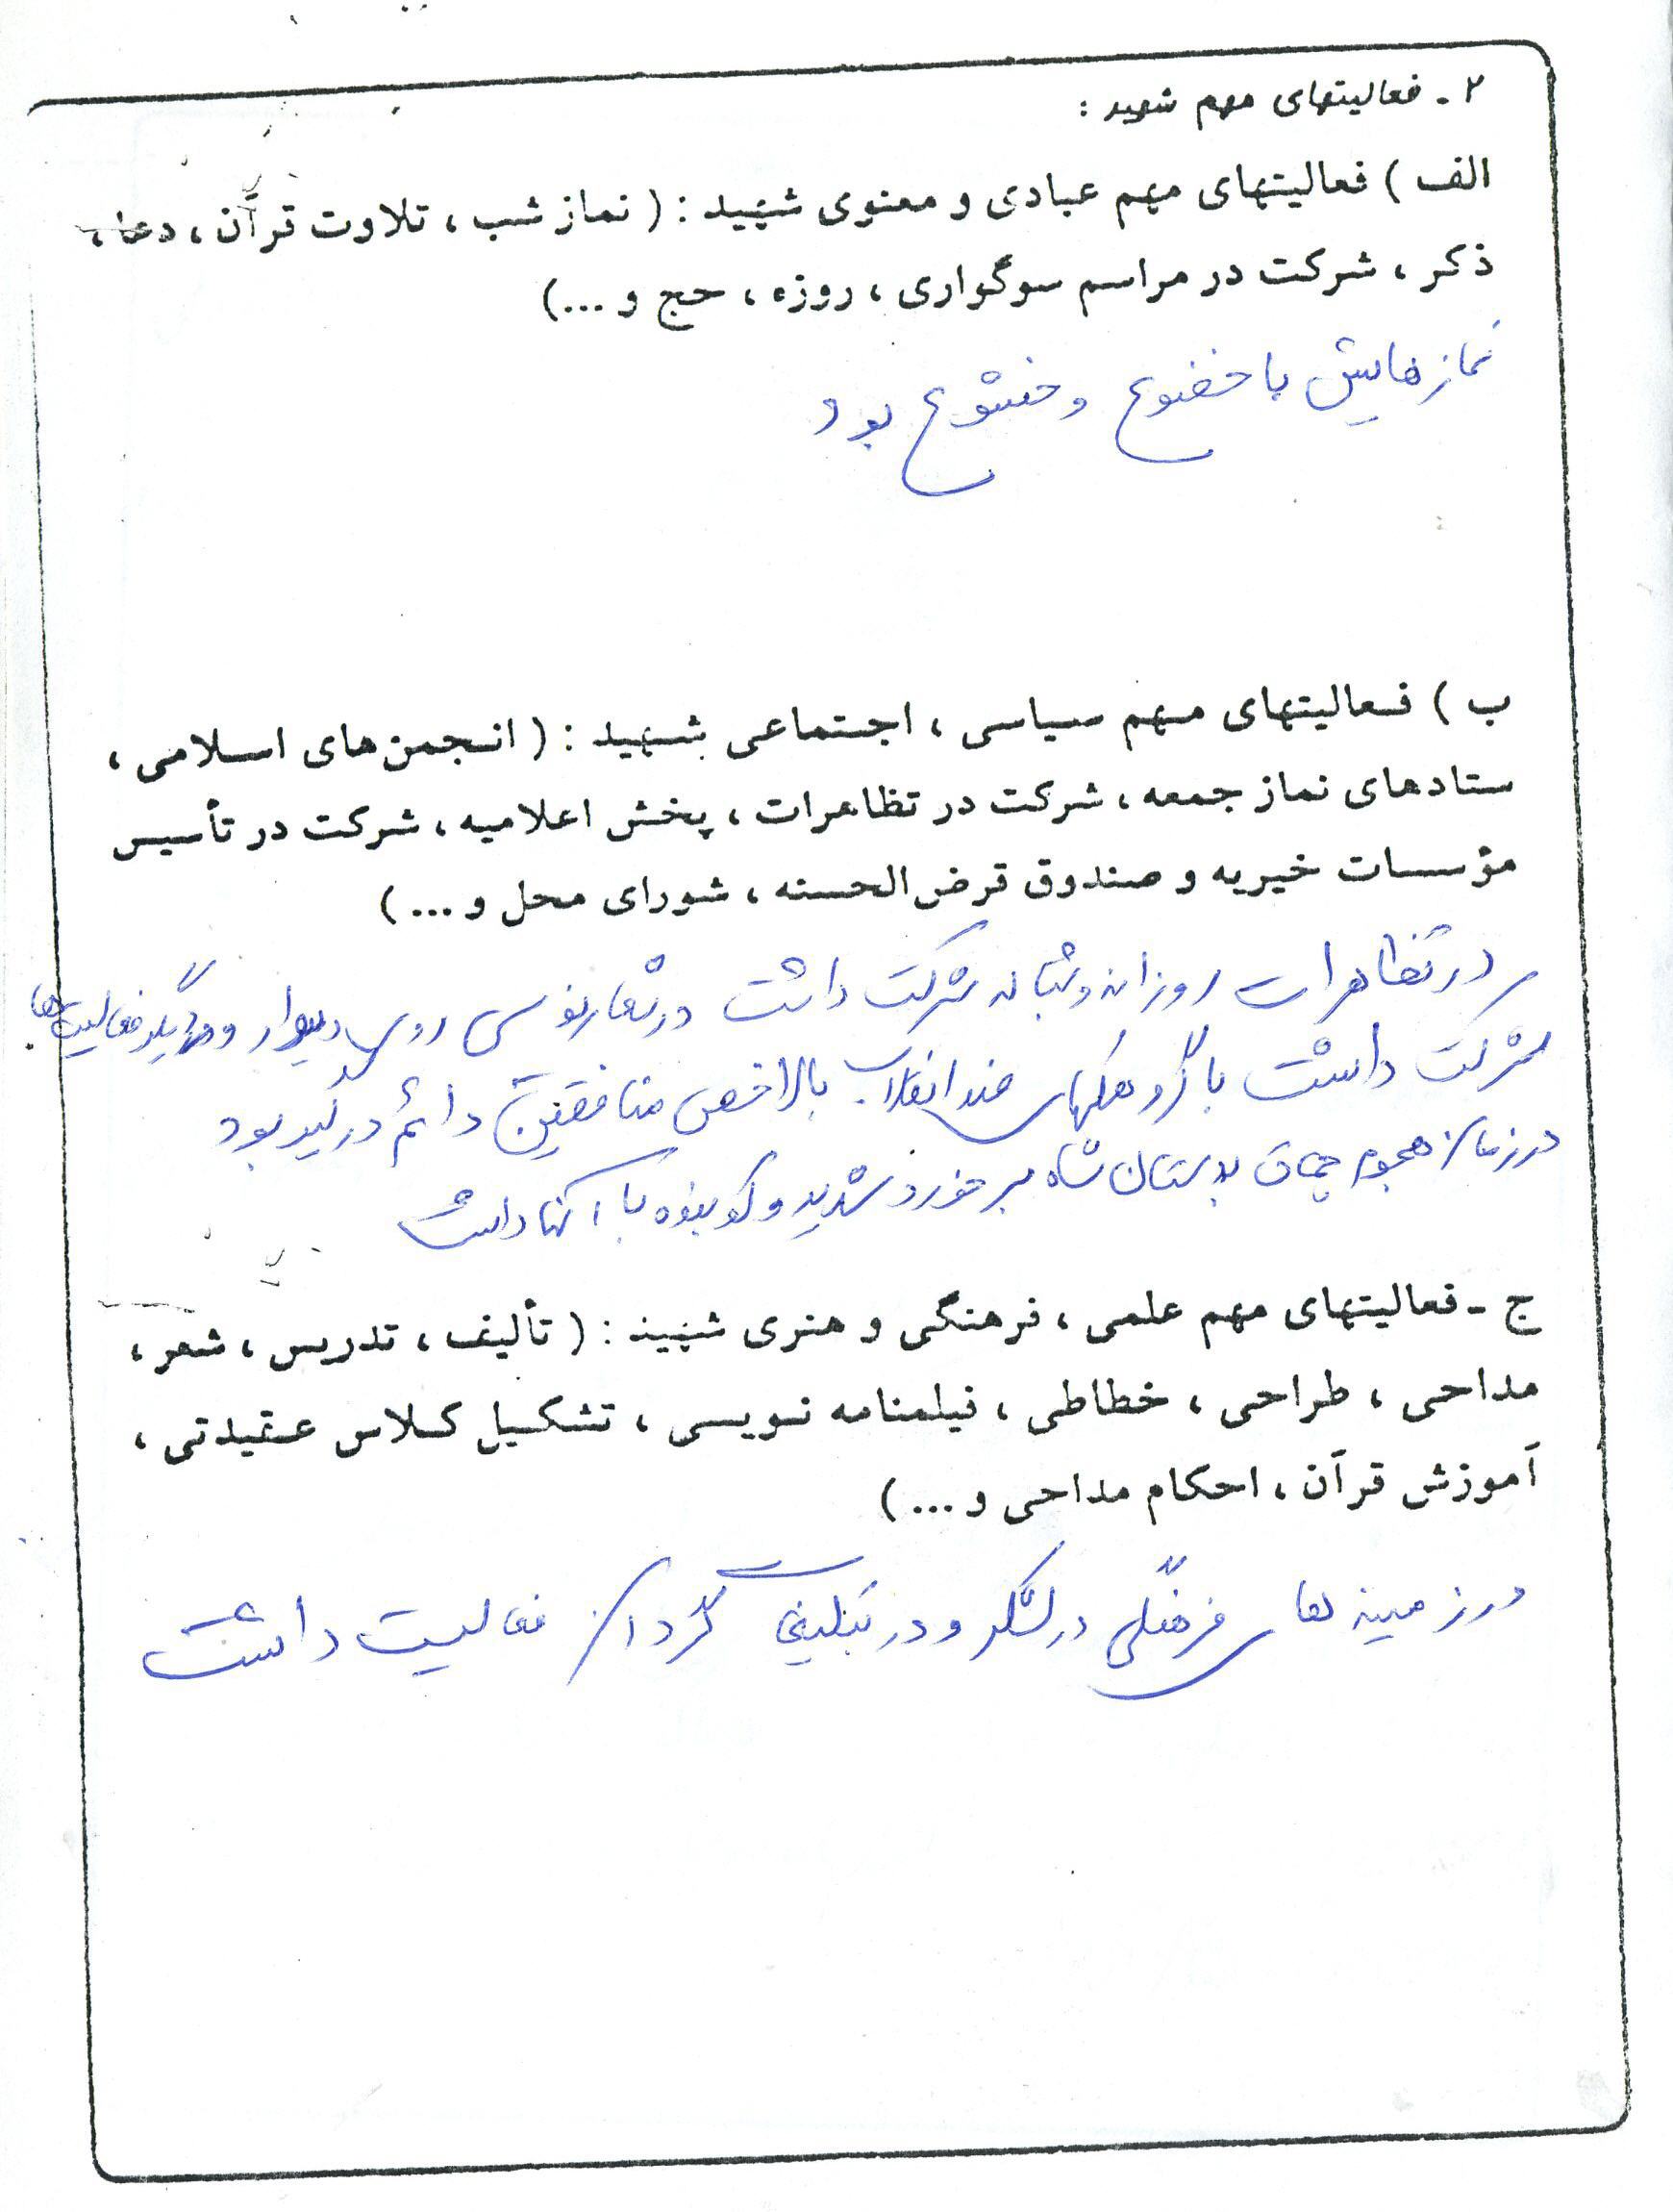 ۲ ـ فعالیتهای مهم شهید :
الف ) فعالیتهای مهم عبادی و معنوی شهید : ( نماز شب ، تلاوت قرآن ، دعا ،
ذکر ، شرکت در مراسم سوگواری ، روزه ، حج و ...)
نمازهایش با خضوع و خشوع بود
ب ) فعالیتهای مهم سیاسی ، اجتماعی شهید : ( انجمن‌های اسلامی ،
ستادهای نماز جمعه ، شرکت در تظاهرات ، پخش اعلامیه ، شرکت در تأسیس
مؤسسات خیریه و صندوق قرض‌الحسنه ، شورای محل و ... )
در تظاهرات روزانه و شبانه شرکت داشت در شعارنویسی روی دیوار و دیگر فعالیت‌ها
شرکت داشت با گروهکهای ضد انقلاب بالاخص منافقین دائم درگیر بود
در زمان هجوم چماق بدستان شاه برخورد شدید و کوبنده با آنها داشت
ج ـ فعالیتهای مهم علمی ، فرهنگی و هنری شهید : ( تألیف ، تدریس ، شعر ،
مداحی ، طراحی ، خطاطی ، فیلمنامه نویسی ، تشکیل کلاس عقیدتی ،
آموزش قرآن ، احکام مداحی و ... )
در زمینه های فرهنگی در لشکر و در تبلیغات گردان فعالیت داشت